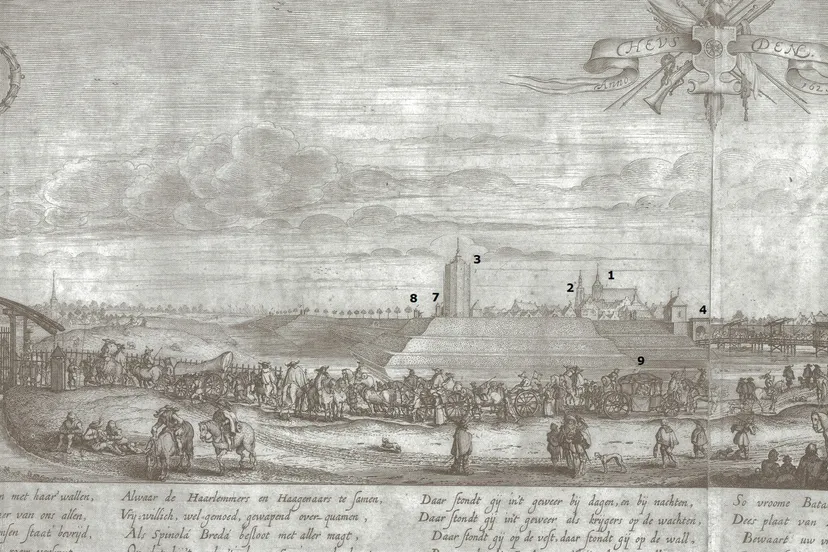 HEVS DEN.
Anno 162
3
1
2
8 7
4
9
met haar wallen,
van ons allen,
staat bevrijd,
Alwaar de Haarlemmers en Haagenaars te samen,
Vry-willich, wel-gemoed, gewapend over-quamen,
Als Spinola Breda besloot met aller magt,
Daar stondt gij in't geweer bij dagen, en bij nachten,
Daar stondt gij int geweer als krygers op de wachten,
Daar stondt gij op de vest, daar stondt gij op de wall,
So vroome Bata
Dees plaat van
Bewaart uw